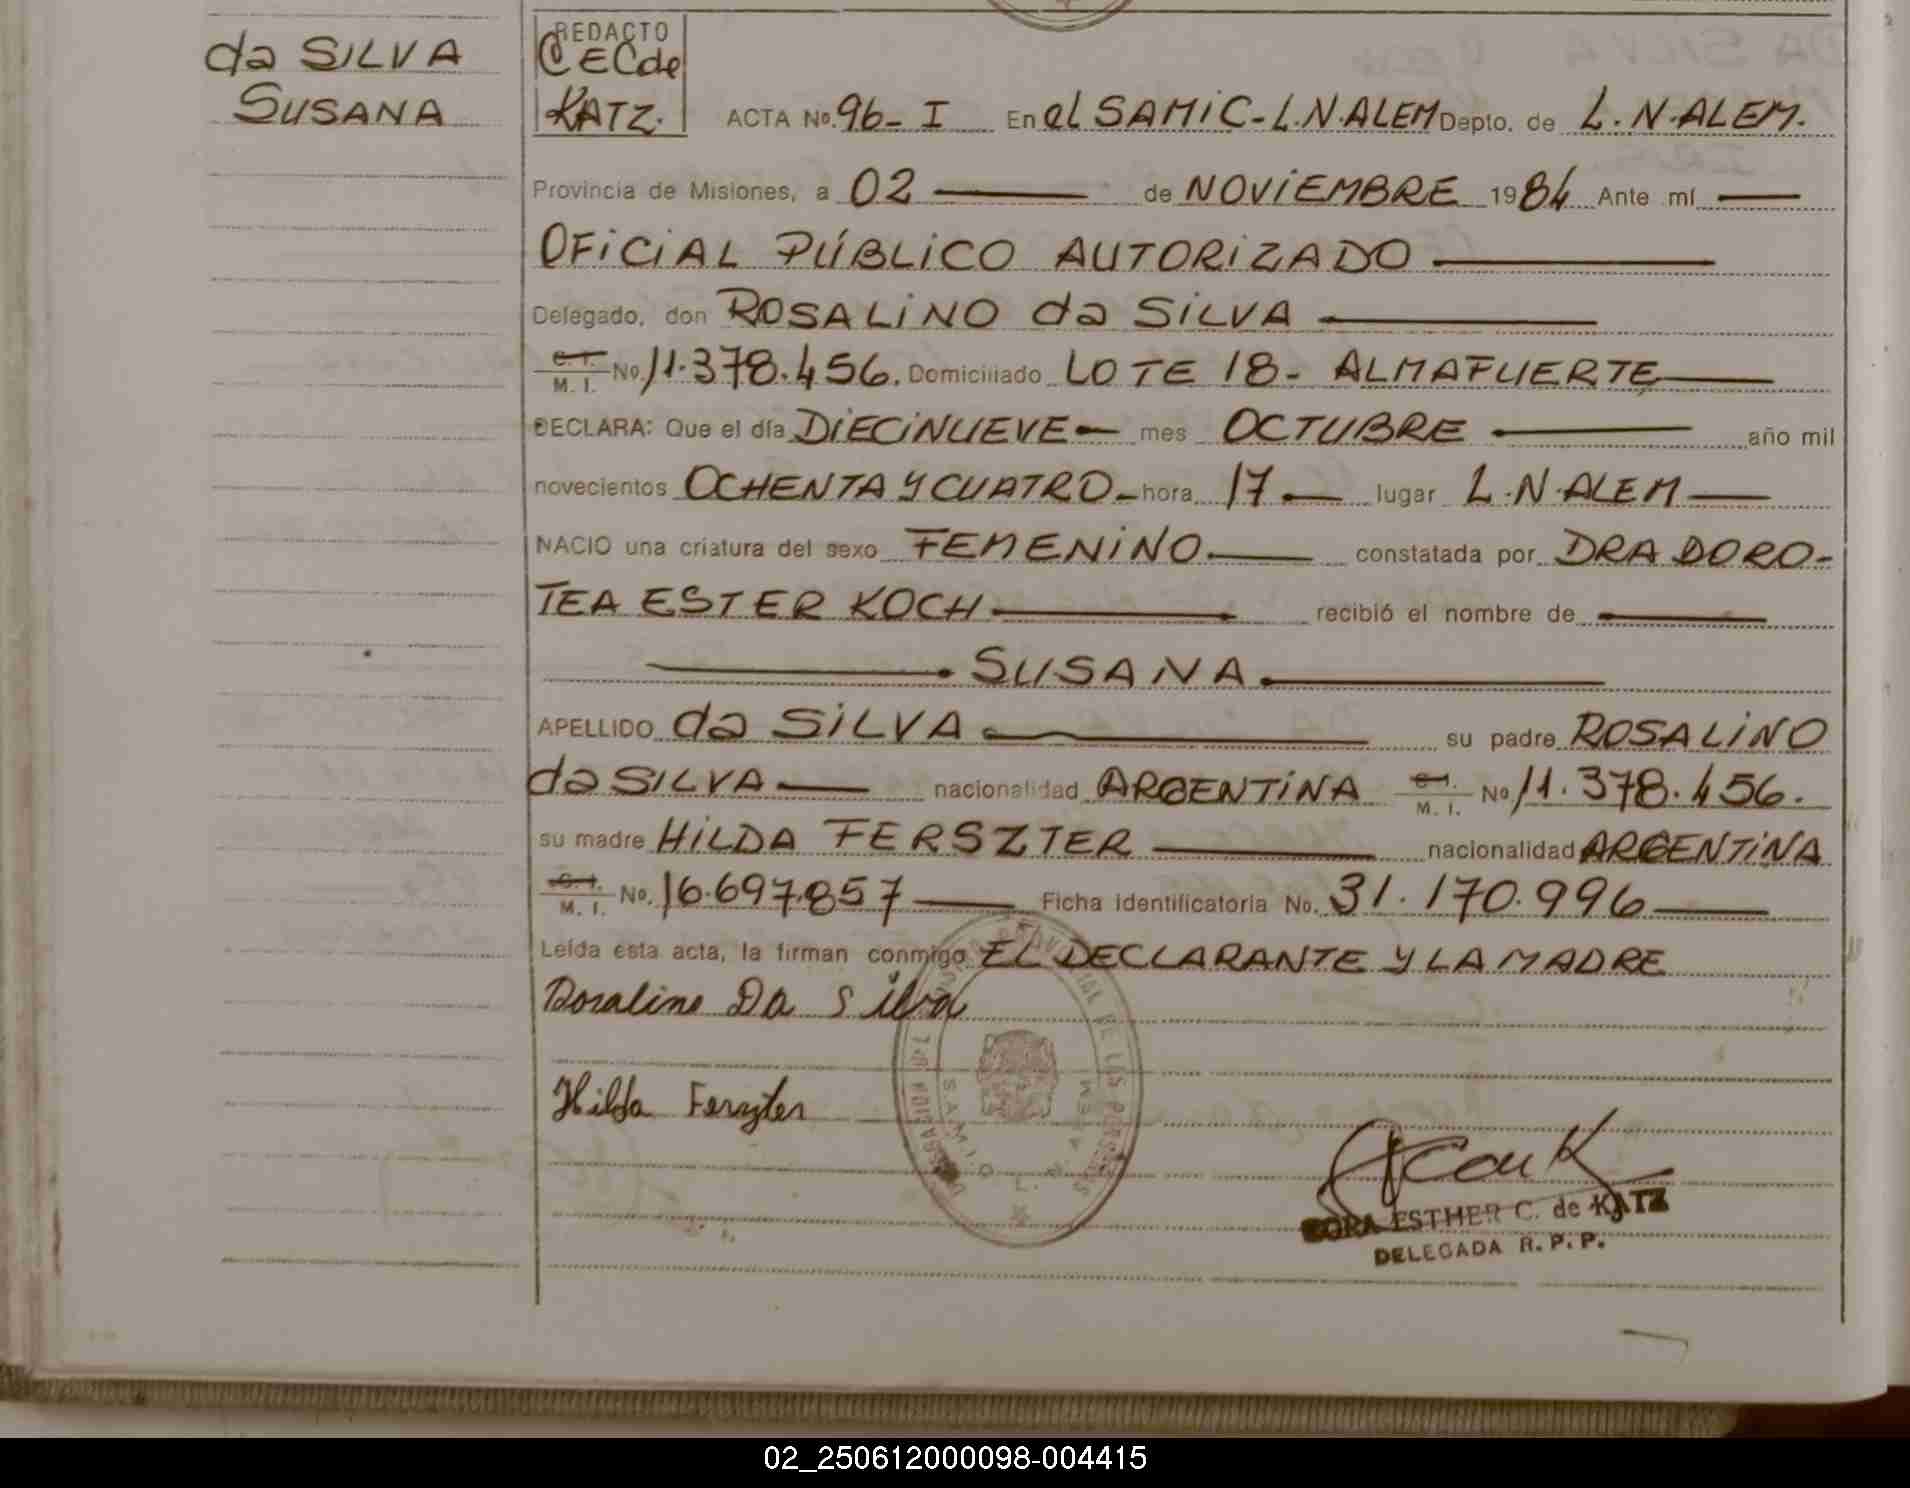 da SILVA
SUSANA
REDACTO
CECde
KATZ.
ACTA No. 96- I En el SAMIC- L.N.ALEM Depto. de L. N. ALEM.
Provincia de Misiones, a 02 de NOVIEMBRE 1984 Ante mí
OFICIAL PÚBLICO AUTORIZADO
Delegado, don ROSALINO da SILVA
C. I. / M. I. No. 11.378.456. Domiciliado LOTE 18- ALMAFUERTE
DECLARA: Que el día DIECINUEVE mes OCTUBRE año mil
novecientos OCHENTA Y CUATRO- hora 17 lugar L.N.ALEM
NACIO una criatura del sexo FEMENINO constatada por DRA DORO-
TEA ESTER KOCH recibió el nombre de
SUSANA
APELLIDO da SILVA su padre ROSALINO
da SILVA nacionalidad ARGENTINA C. I. / M. I. No 11.378.456.
su madre HILDA FERSZTER nacionalidad ARGENTINA
C. I. / M. I. No. 16.697.857 Ficha identificatoria No. 31.170.996
Leída esta acta, la firman conmigo EL DECLARANTE Y LA MADRE
Rosalino Da Silva
Hilda Ferszter
S.A.M.I.C. L. N. ALEM
ESTHER C. de KATZ
DELEGADA R. P. P.
02_250612000098-004415